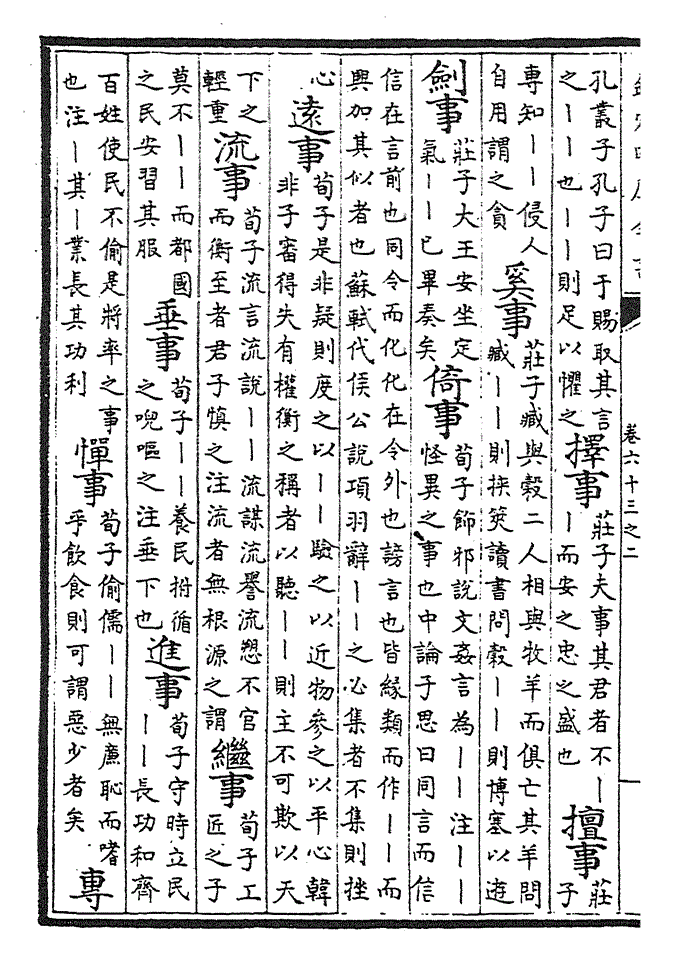 欽定四庫全書
卷六十三之二
孔叢子孔子曰于賜取其言
之丨丨也丨丨則足以懼之
擇事
莊子夫事其君者不丨
丨而安之忠之盛也
擅事
莊
子
專知丨丨侵人
自用謂之貪
奚事
莊子臧與穀二人相與牧羊而俱亡其羊問
臧丨丨則挾筴讀書問穀丨丨則博塞以遊
劍事
莊子大王安坐定
氣丨丨已畢奏矣
倚事
荀子飾邪說文姦言為丨丨注丨丨
怪異之事也中論子思曰同言而信
信在言前也同令而化化在令外也謗言也皆緣類而作丨丨而
興加其似者也蘇軾代侯公說項羽辭丨丨之必集者不集則挫
心
遠事
荀子是非疑則度之以丨丨驗之以近物參之以平心韓
非子審得失有權衡之稱者以聽丨丨則主不可欺以天
下之
輕重
流事
荀子流言流說丨丨流謀流譽流愬不官
而衡至者君子慎之注流者無根源之謂
繼事
荀子工
匠之子
莫不丨丨而都國
之民安習其服
垂事
荀子丨丨養民拊循
之唲嘔之注垂下也
進事
荀子守時立民
丨丨長功和齊
百姓使民不偷是將率之事
也注丨其丨業長其功利
憚事
荀子偷儒丨丨無廉恥而嗜
乎飲食則可謂惡少者矣
專